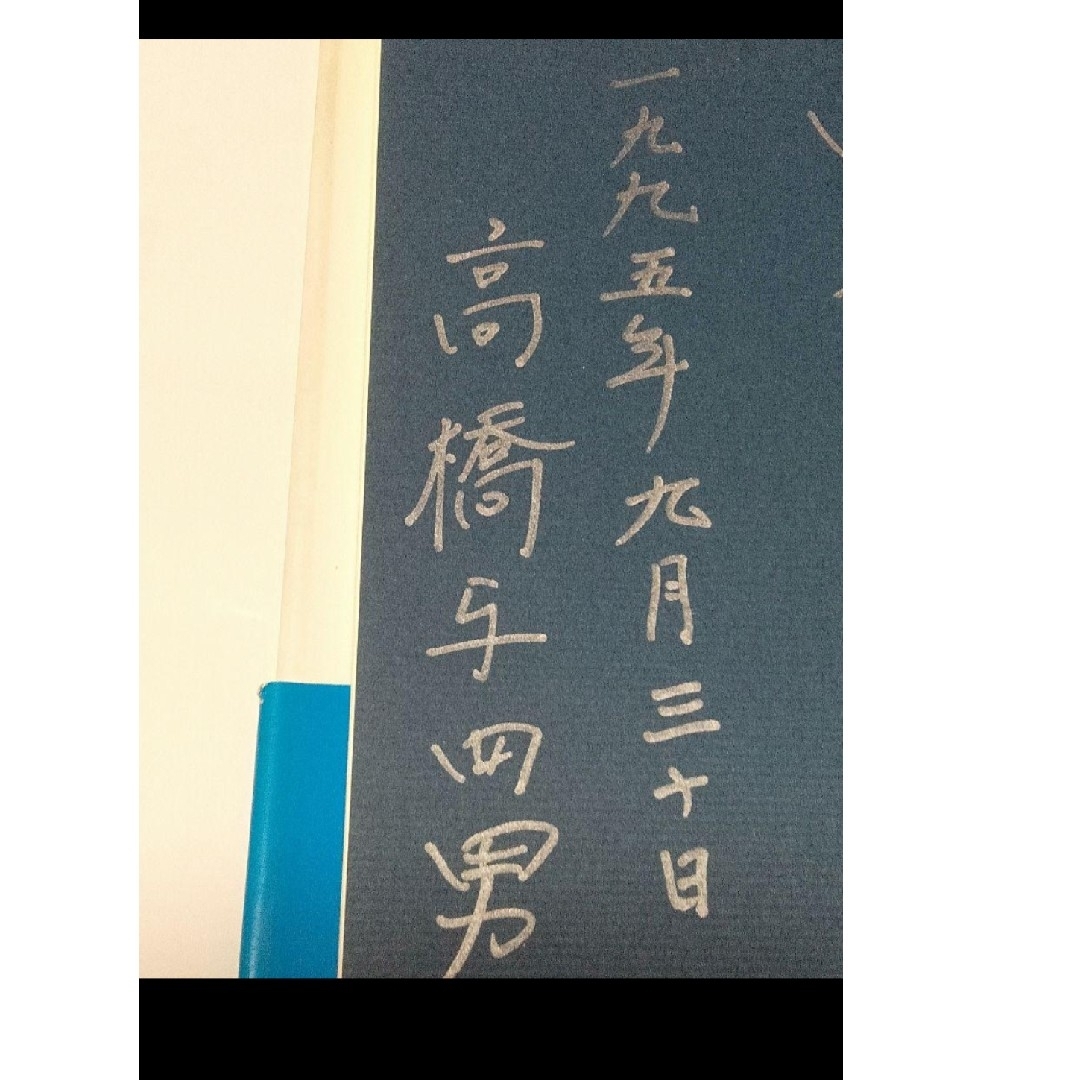 一九九五年九月三十日
高橋与四男